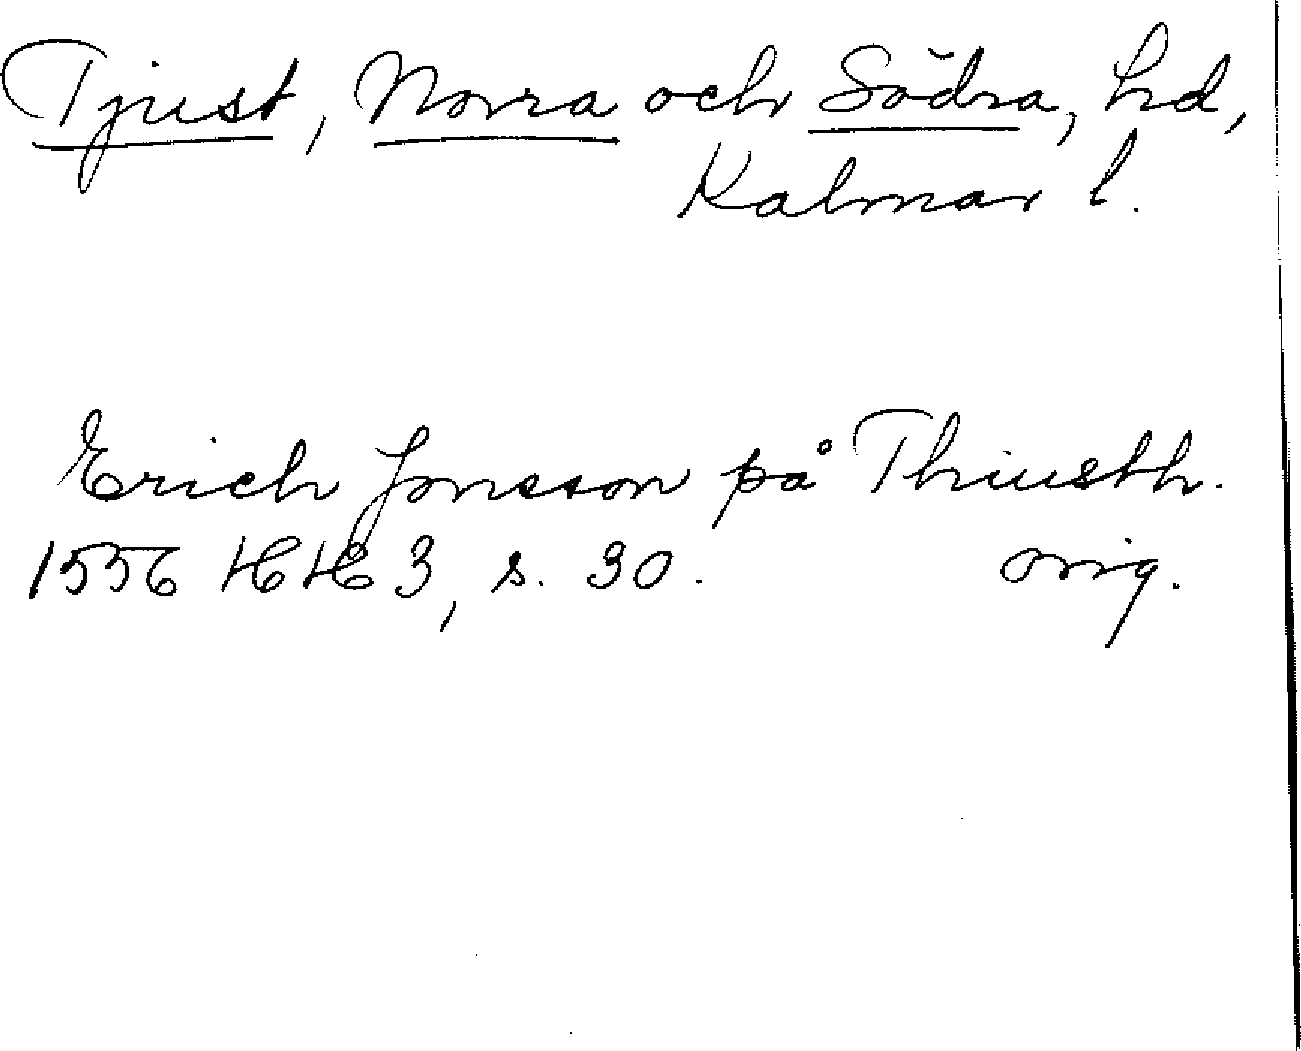 Tjust, Norra och Södra, hd,
Kalmar l.
Erich Jonsson på Thiusth.
1556 HH 3, s. 30. orig.